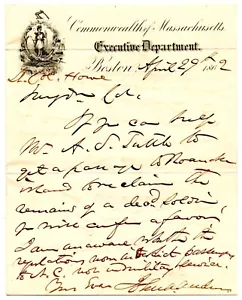 Commonwealth of Massachusetts.
Executive Department.
Boston, April 29th 1862
Lt. Col. Howe
My dr Col.
If you can help
Mr A. S. Tuttle to
get a passage to Roanoke
island to reclaim the
remains of a dead soldier,
you will confer a favor
I am unaware whether the
regulations now
to N.C. non military
Yours Ever